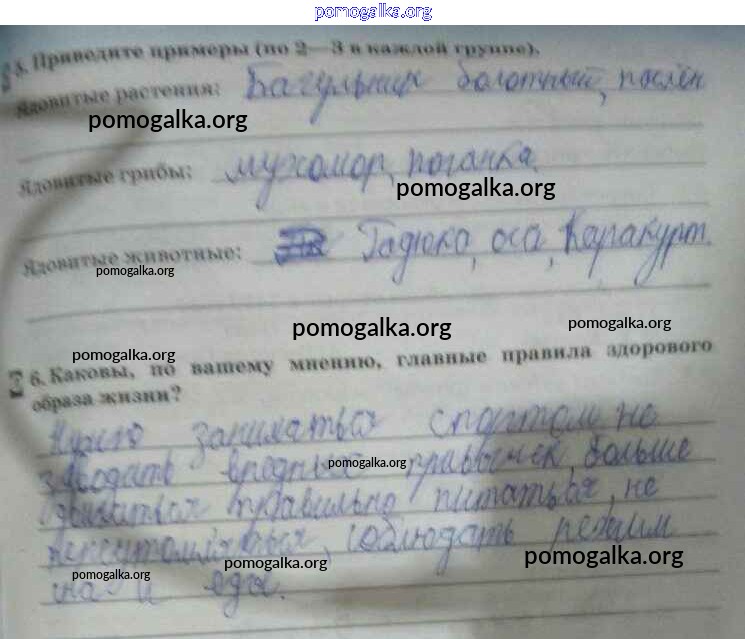 pomogalka.org
5. Приведите примеры (по 2—3 в каждой группе).
Ядовитые растения: Багульник болотный, паслён
pomogalka.org
Ядовитые грибы: мухомор, поганка
pomogalka.org
Ядовитые животные: Гадюка, оса, Каракурт.
pomogalka.org
pomogalka.org
pomogalka.org
pomogalka.org
6. Каковы, по вашему мнению, главные правила здорового
образа жизни?
Нужно заниматься спортом, не
заводить вредных привычек, больше
pomogalka.org
двигаться правильно питаться, не
соблюдать режим
pomogalka.org
pomogalka.org
pomogalka.org
сна и еды.